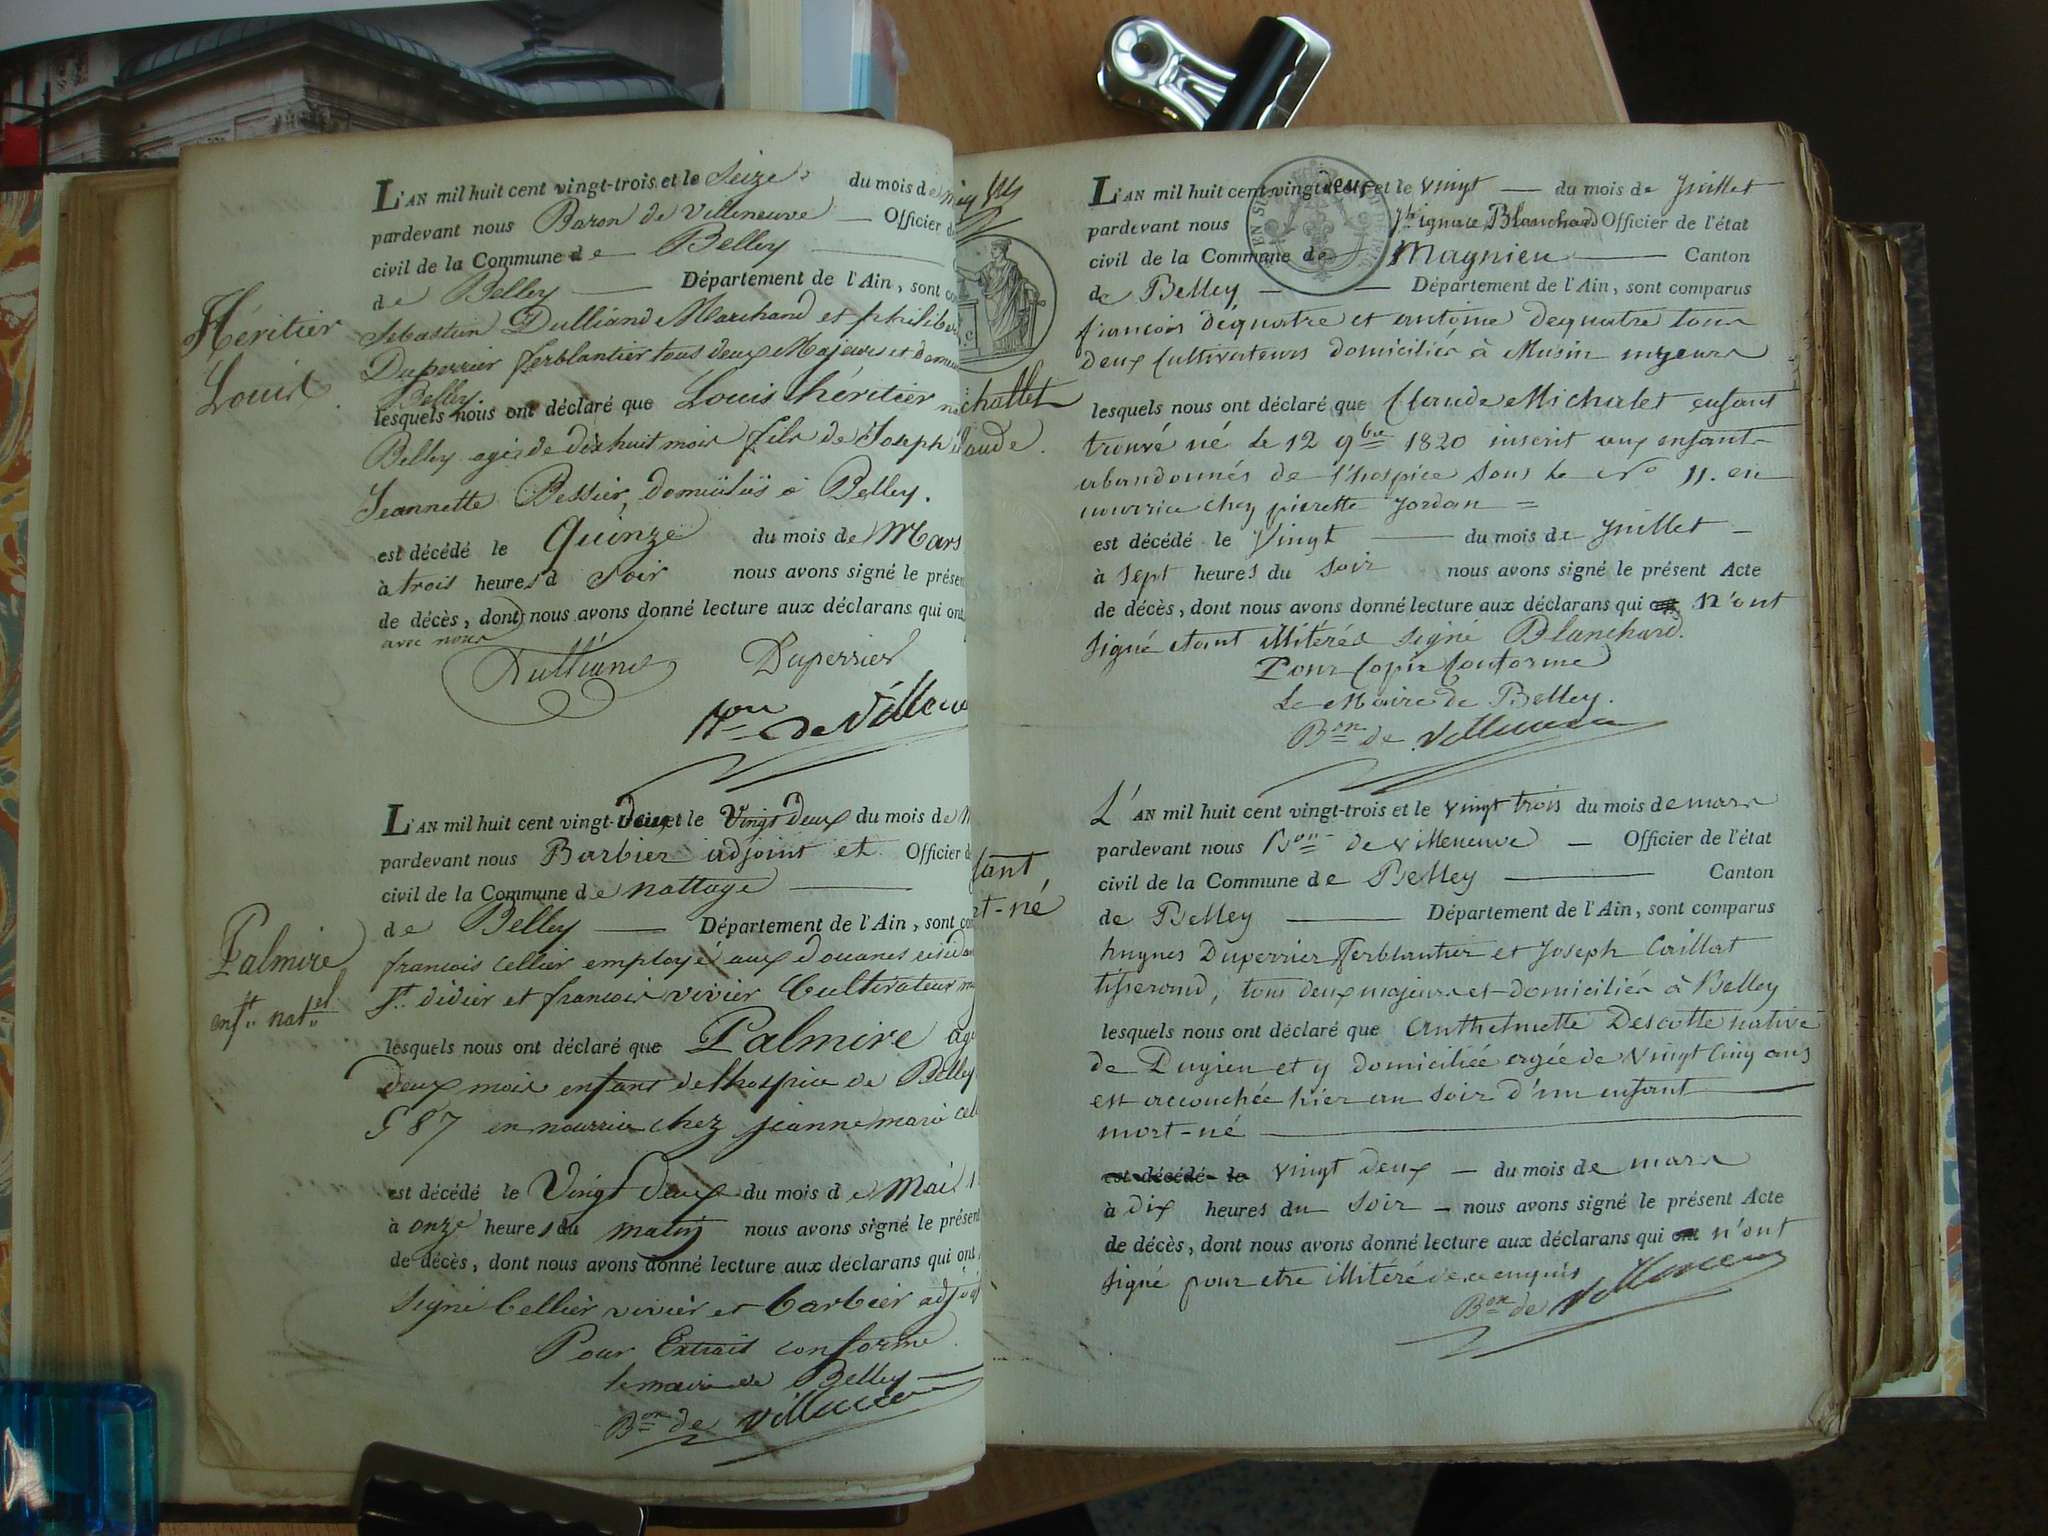 L'AN mil huit cent vingt-trois et le Seize du mois de
pardevant nous Baron de Villeneuve — Officier
civil de la Commune de Belley
de Belley — Département de l'Ain, sont
Héritier
Louis
Sebastien Dulliand Marchand et philiber
Duperrier ferblantier tous deux Majeurs et
Belley.
lesquels nous ont déclaré que Louis héritier
Belley agé de dix huit mois fils de Joseph
Jeannette Bessier, domiciliés à Belley.
est décédé le Quinze du mois de Mars
à trois heures d soir nous avons signé le présen
de décès, dont nous avons donné lecture aux déclarans qui ont
avec nous
Dulliand Duperrier
de Villeneu
L'AN mil huit cent vingt-deux et le Vingt deux du mois de
pardevant nous Barbier adjoint et Officier de
civil de la Commune de nattage
de Belley — Département de l'Ain, sont co
Palmire
enft. natel
francois cellier employé aux douanes
St. didier et francois vivier Cultivateur
lesquels nous ont déclaré que Palmire
deux mois enfant de lhospice de Belley
87 en nourrice chez jeanne marie
est décédé le Vingt deux du mois de Mai
à onze heures du matin nous avons signé le présen
de décès, dont nous avons donné lecture aux déclarans qui ont
signé Cellier vivier et barbier adjoi
Pour Extrait conforme
le maire de Belley
Bon de Villeneuve
L'AN mil huit cent vingt deux et le vingt — du mois de Juillet
pardevant nous Jh ignace Blanchard Officier de l'état
civil de la Commune de Magnieu — Canton
de Belley — Département de l'Ain, sont comparus
francois dequatre et antoine dequatre tous
deux Cultivateurs domiciliés à Musin mjeurs
michallet
laude.
lesquels nous ont déclaré que Claude Michalet enfant
trouvé né le 12 9bre 1820 inscrit aux enfants
abandonnés de l'hospice sous le No 11. en
nourrice chez pierrette Jordan =
est décédé le Vingt — du mois de Juillet —
à sept heures du soir nous avons signé le présent Acte
de décès, dont nous avons donné lecture aux déclarans qui n'ont
signé etant illitérés signé Blanchard.
Pour Copie Conforme
Le Maire de Belley.
Bon de Villeneuve
L'AN mil huit cent vingt-trois et le vingt trois du mois de mars
pardevant nous Bon de villeneuve — Officier de l'état
civil de la Commune de Belley — Canton
de Belley — Département de l'Ain, sont comparus
fant
rt-né
hugues Duperrier ferblantier et Joseph Caillat
tisserand, tous deux majeurs et domiciliés à Belley
lesquels nous ont déclaré que Anthelmette Descotte native
de Pugieu et y domiciliée agée de vingt Cinq ans
est accouchée hier au soir d'un enfant
mort-né
est décédé le vingt deux — du mois de mars
à dix heures du soir — nous avons signé le présent Acte
de décès, dont nous avons donné lecture aux déclarans qui ont n'ont
signé pour etre illitéré de ce enquis
Bon de Villeneuve